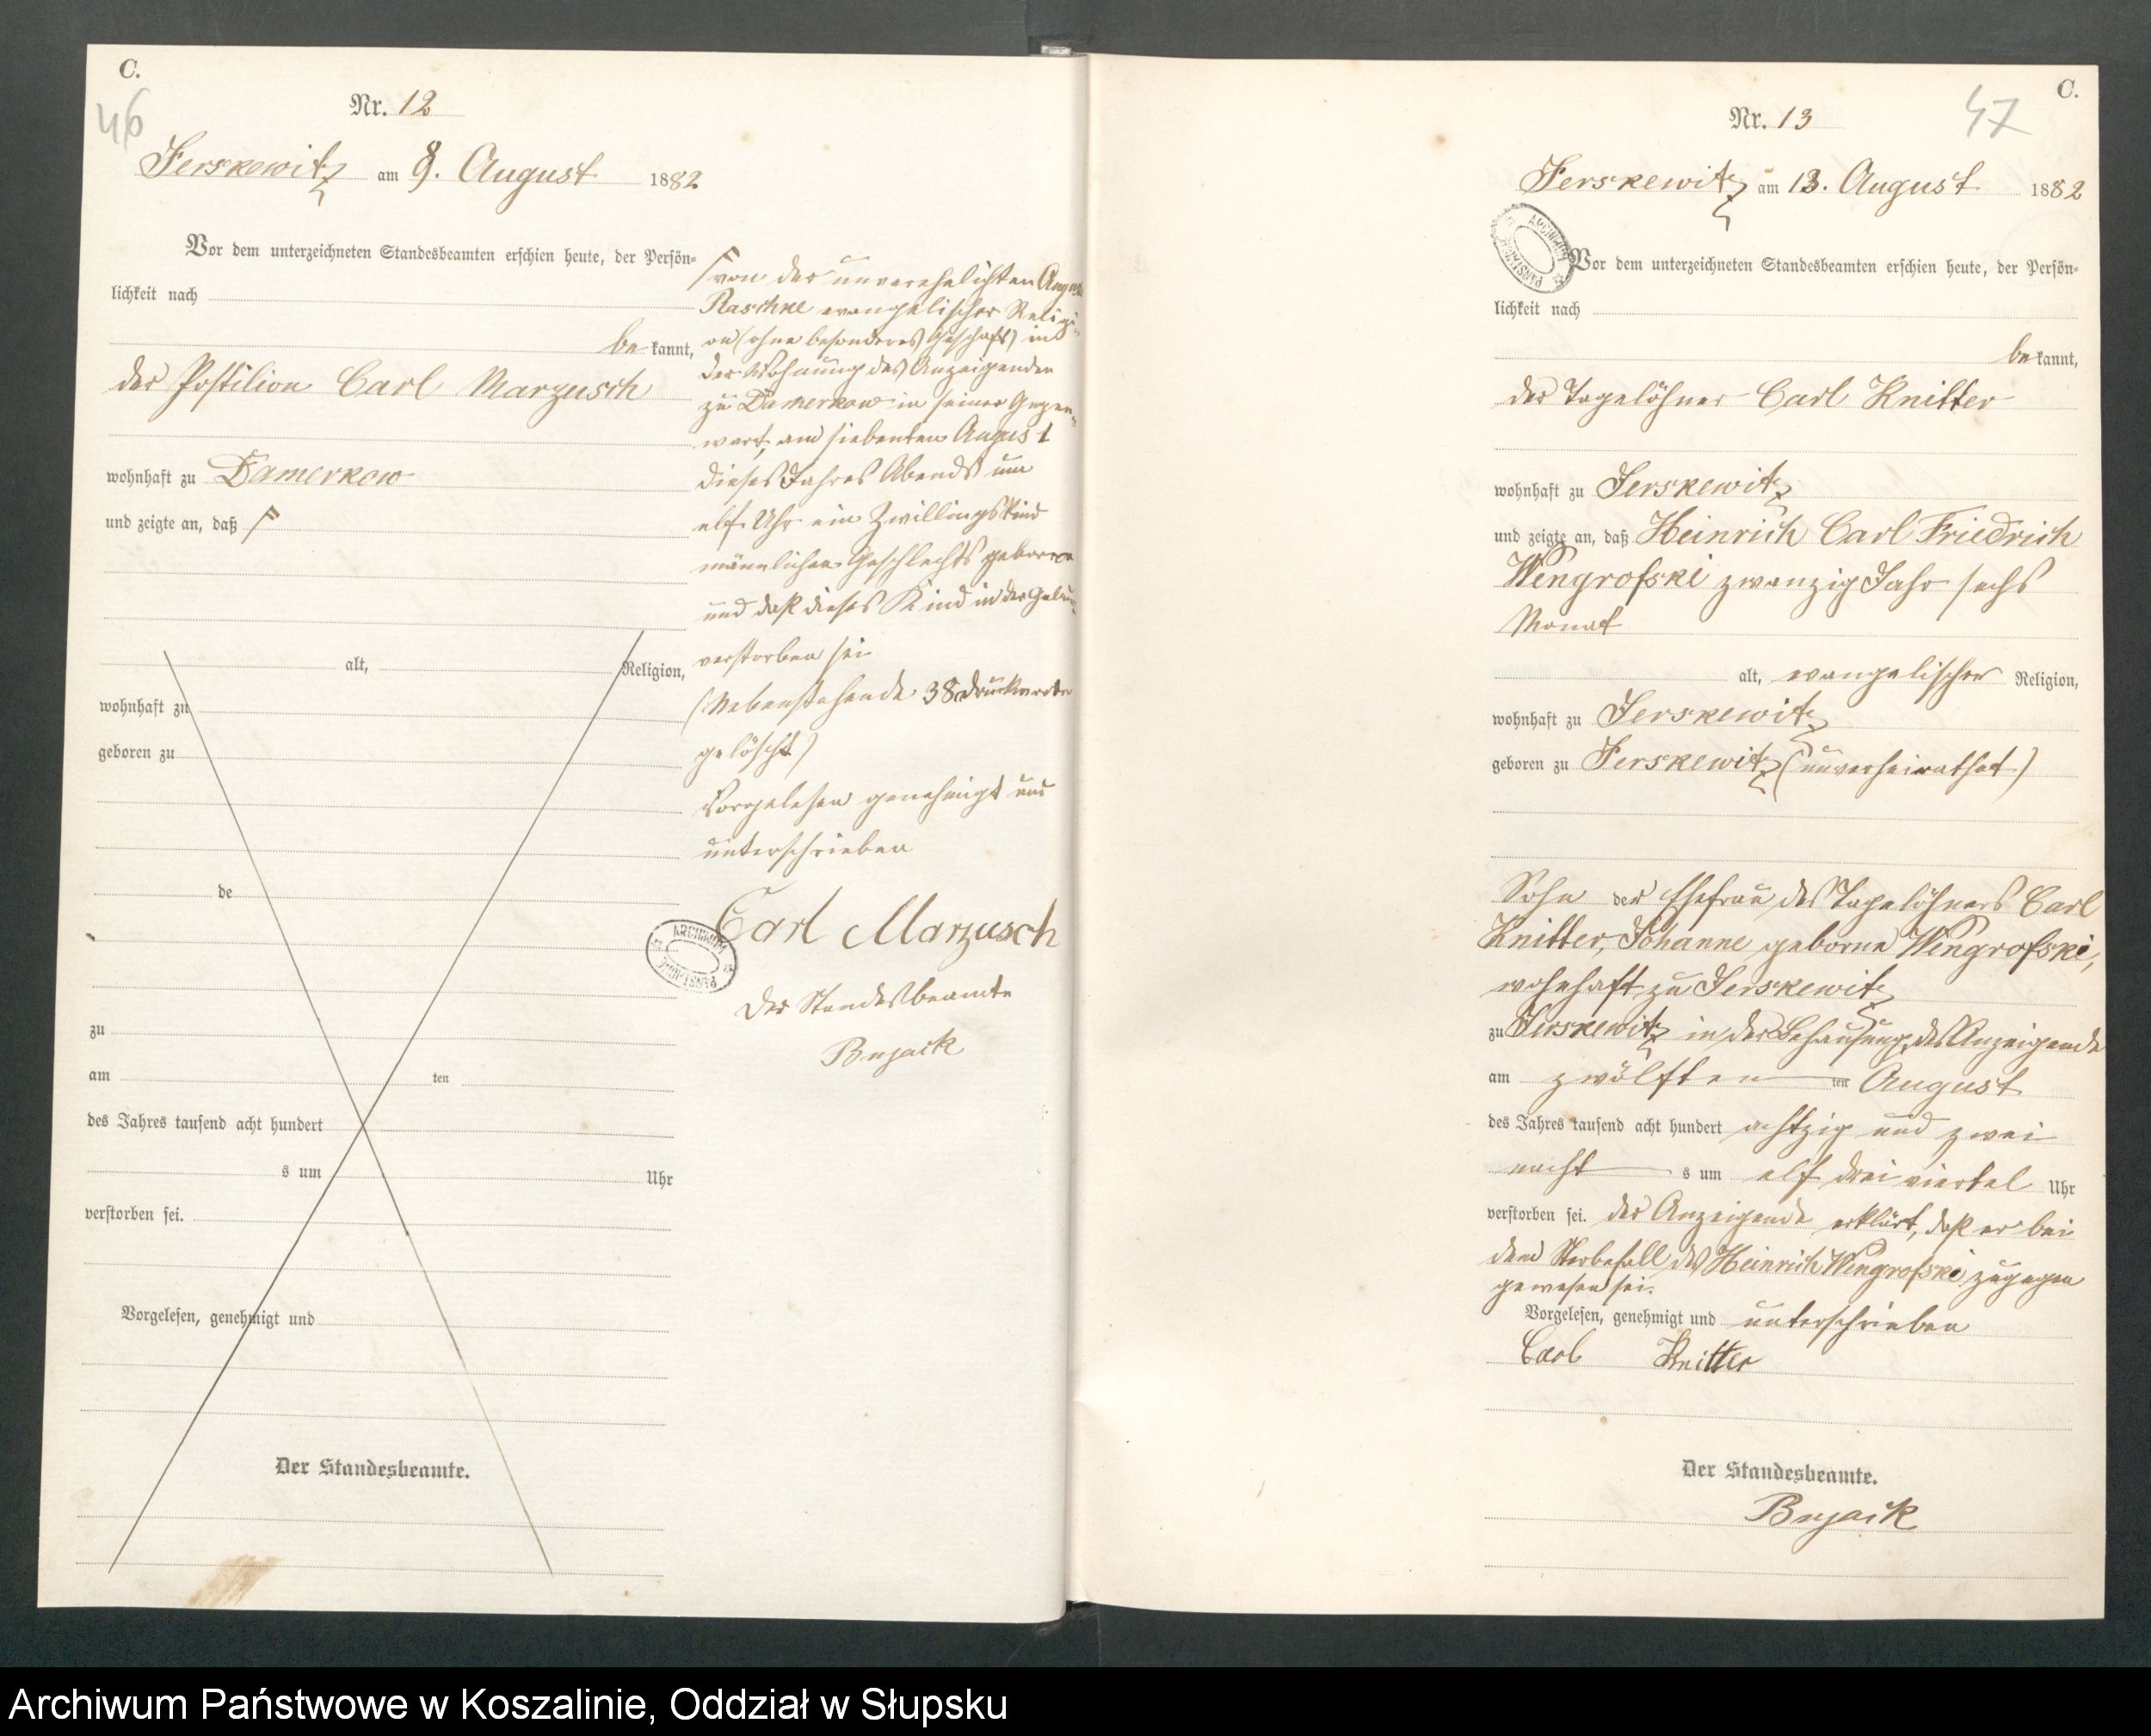 C.
46
Nr. 12
Jerskewitz am 9. August 1882
Vor dem unterzeichneten Standesbeamten erschien heute, der Persön-
lichkeit nach
bekannt,
der Postilion Carl Marzusch
wohnhaft zu Damerkow
und zeigte an, daß
alt, Religion,
wohnhaft zu
geboren zu
de
zu
am ten
des Jahres tausend acht hundert
s um Uhr
verstorben sei.
Vorgelesen, genehmigt und
Der Standesbeamte.
von der unverehelichten
Raschke evangelischer Religi-
on (ohne besonderes Geschäft) in
der Wohnung des Anzeigenden
zu Damerkow in seiner Gegen-
wart, am siebenten August
dieses Jahres Abends um
elf Uhr ein Zwillingskind
männlichen Geschlechts geboren
und daß dieses Kind in der
verstorben sei
(Nebenstehende 38 Druckworte
gelöscht)
Vorgelesen genehmigt und
unterschrieben
Carl Marzusch
ARCHIWUM PAŃSTWOWE
Der Standesbeamte
Bujack
C.
47
Nr. 13
Jerskewitz am 13. August 1882
ARCHIWUM PAŃSTWOWE
Vor dem unterzeichneten Standesbeamten erschien heute, der Persön-
lichkeit nach
bekannt,
der Tagelöhner Carl Knitter
wohnhaft zu Jerskewitz
und zeigte an, daß Heinrich Carl Friedrich
Wengrofski zwanzig Jahr sechs
Monat
alt, evangelischer Religion,
wohnhaft zu Jerskewitz
geboren zu Jerskewitz (unverheirathet)
Sohn der Ehefrau des Tagelöhners Carl
Knitter, Johanne geborne Wengrofski,
wohnhaft zu Jerskewitz
zu Jerskewitz in der Behausung des Anzeigende
am zwölften ten August
des Jahres tausend acht hundert achtzig und zwei
nacht s um elf drei viertel Uhr
verstorben sei. der Anzeigende erklärt, daß er bei
dem Sterbefall des Heinrich Wengrofski zugegen
gewesen sei.
Vorgelesen, genehmigt und unterschrieben
Carl Knitter
Der Standesbeamte.
Bujack
Archiwum Państwowe w Koszalinie, Oddział w Słupsku